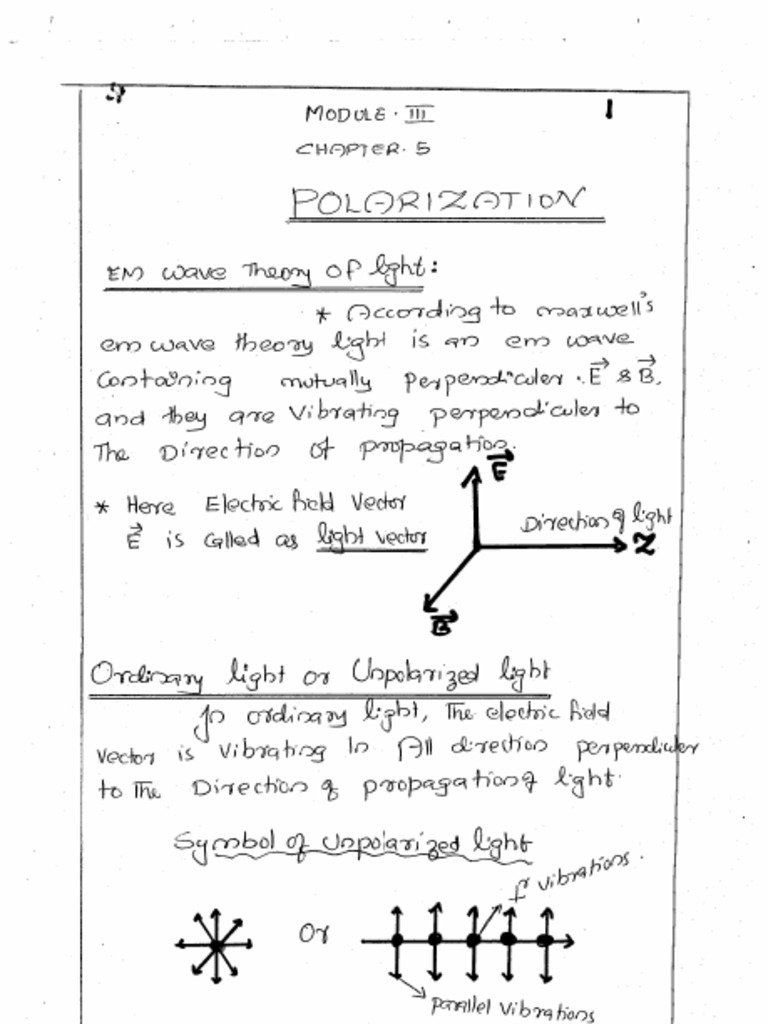 1
MODULE. III
CHAPTER. 5
POLARIZATION
EM wave Theory of light:
* According to maxwell's
em wave theory light is an em wave
Containing mutually perpendiculer. E⃗ & B⃗,
and they are vibrating perpendiculer to
The Direction of propagation.
* Here Electric field vector
E⃗ is called as light vector
E⃗
Direction of light
Z
B⃗
Ordinary light or Unpolarized light
In ordinary light, The electric field
vector is vibrating In All direction perpendiculer
to The Direction of propagation of light.
Symbol of unpolarized light
⊥r vibrations.
Or
parallel vibrations